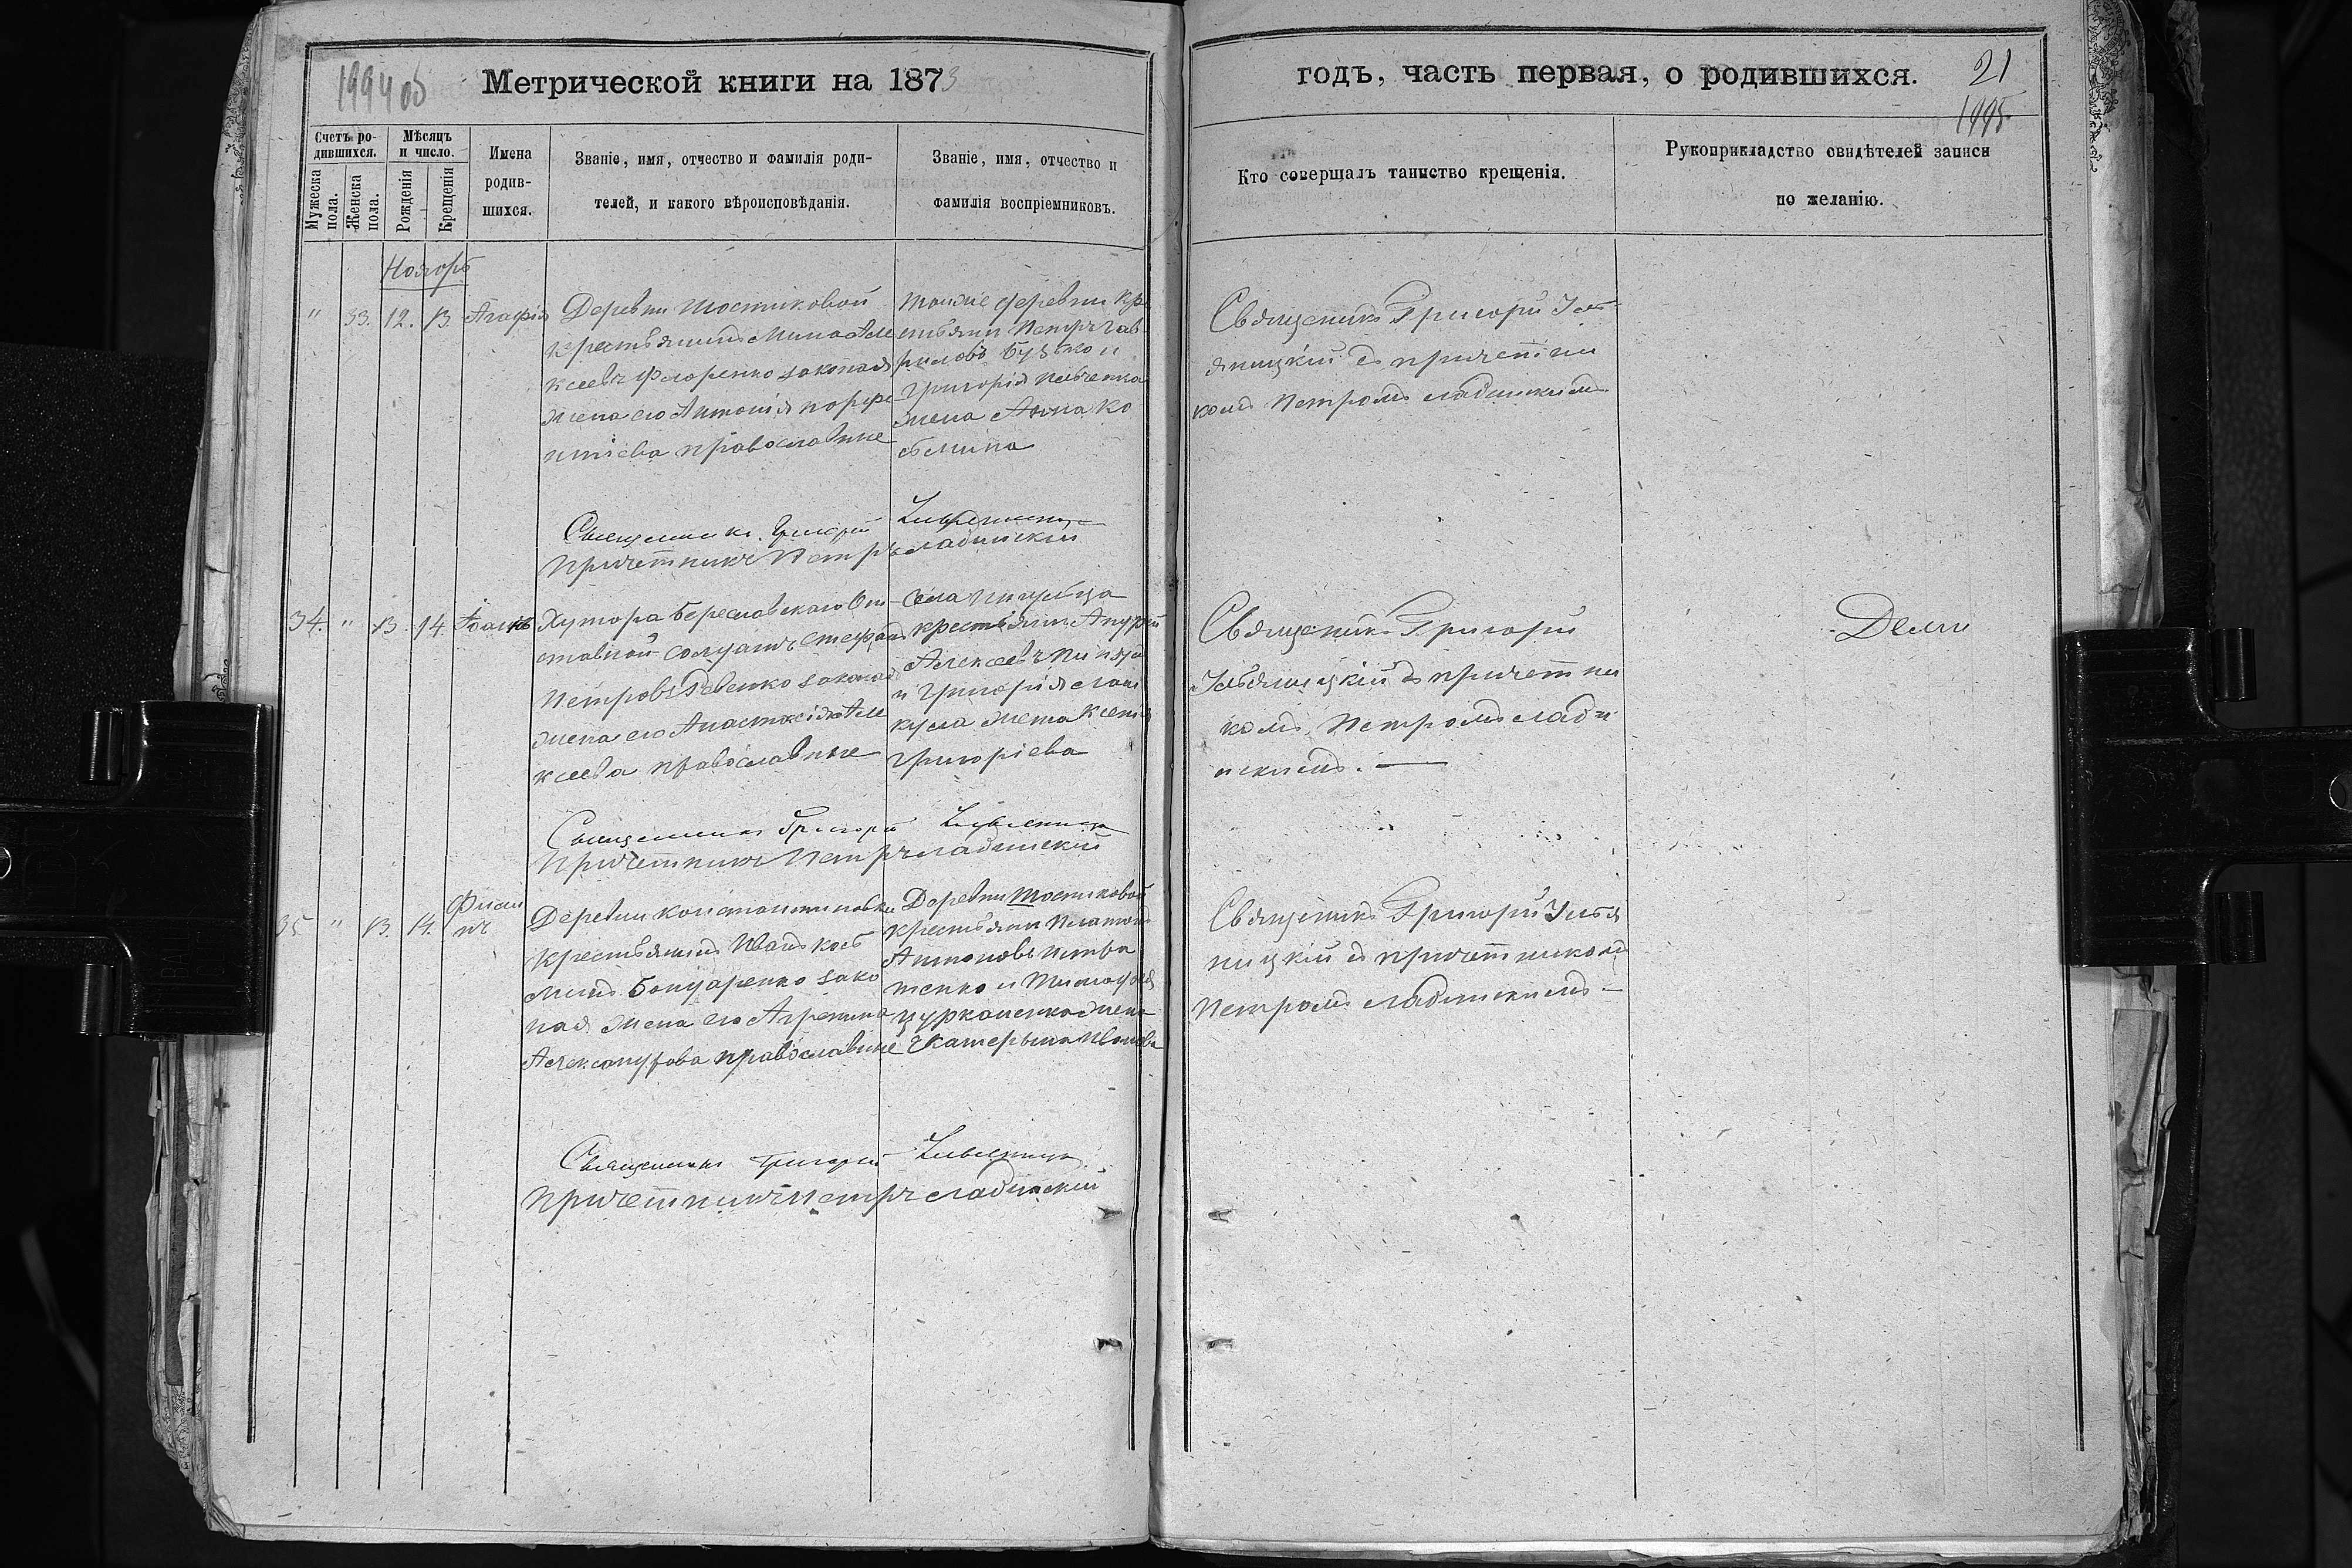 Метрической книги на 1873
годъ, часть первая, о родившихся.
21
1995
Счетъ ро-
дившихся.
Мѣсяцъ
и число.
Мужеска
пола.
Женска
пола.
Рожденія
Крещенія
Имена
родив-
шихся.
Званіе, имя, отчество и фамилія роди-
телей, и какого вѣроисповѣданія.
Званіе, имя, отчество и
фамилія воспріемниковъ.
Кто совершалъ таинство крещенія.
Рукоприкладство свидѣтелей записи
по желанію.
Ноябрь
" 33. 12. 13. Агафія
Деревни Мостиковой
крестьянинъ Мина Але
ксеевъ Фторенко законая
жена его Антонія порфи
ріева православные
тойже деревни кре
стьяни Петръ Гав
риловъ Бузько и
Григорія
жена Анна Ко
сьмина
Священикъ Григорій
съ причетни
комъ Петромъ сладинскимъ
Священникъ Григорій
Причетникъ Петръ сладинскій
34. " 13. 14. Іоанъ
Хутора Береславскаго От
ставной солдатъ Стефанъ
Петровъ Ревенко законая
жена его Анастасія Але
ксеева православные
Села
крестьянин
Алексеевъ
и Григорія
жена Ксенія
Григоріева
Священикъ Григорій
съ причетни
комъ Петромъ слади
нскимъ.
Священникъ Григорій
Причетникъ Петръ сладинскій
35 " 13. 14. Фили
пъ
Деревни константиновки
крестьянинъ Иванъ кось
минъ Бондаренко зако
ная жена его Агрепина
Александрова православные
Деревни Мостиковой
крестьянин Платонъ
Антоновъ
тенко и Тимофея
цурканенко жена
Екатерина Иванова
Священикъ Григорій
ницкій съ причетникомъ
Петромъ сладинскимъ
Священникъ Григорій
Причетникъ Петръ сладинскій